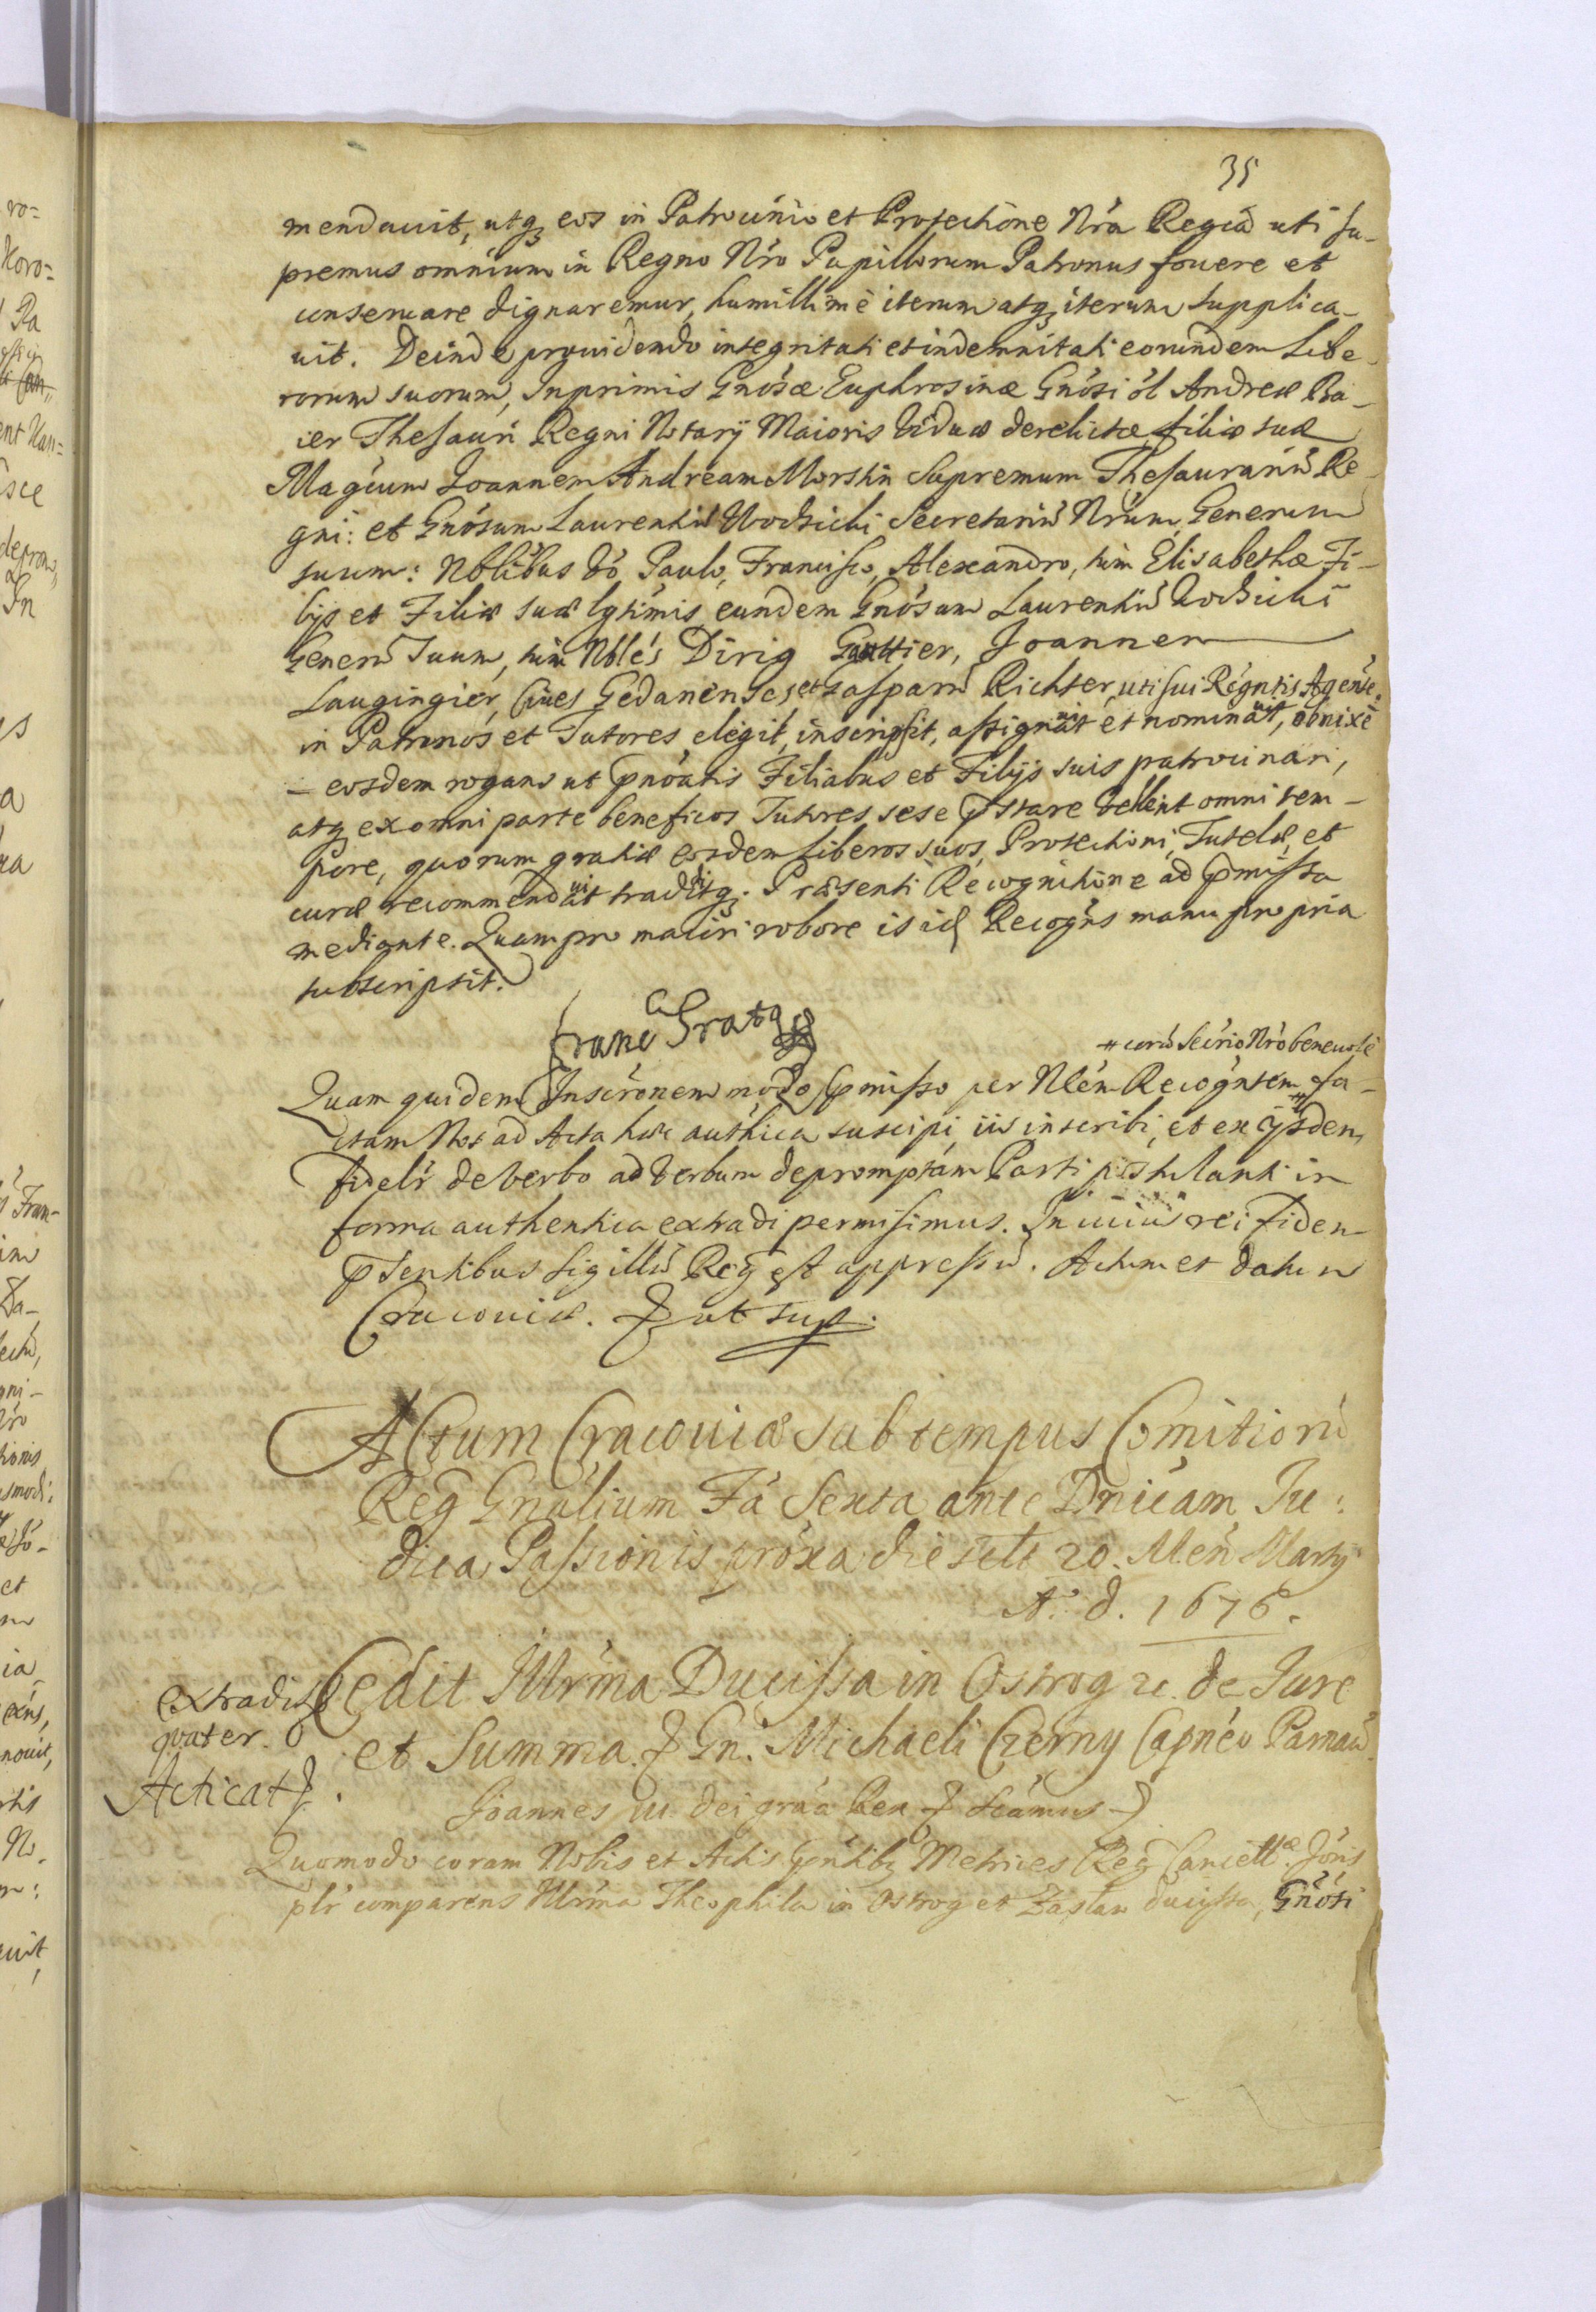 35
mendauit, utq₃ eos in Patrocinio et Protectione Nrá Regiâ uti su-
premus omnium in Regno Nró Pupillorum Patronus fouere et
conseruare dignaremur, humillimè iterum atq₃ iterum supplica-
uit. Deinde prouidendo integritati et indemnitati eorundem Libe-
rorum suorum, Inprimis Gnósæ Euphrosinæ Gnósi ól Andreæ Ba-
ier Thesauri Regni Notarij Maioris Viduæ derelictæ filiæ suæ
Magcúm Joannem Andream Morstin Supremum Thesaurariū Re-
gni: et Gnósum Laurentiū Wodzicki Secretariū Nrúm, Generum
suum: Nóblibus vó Paulo, Francisco, Alexandro, tùm Elisabethæ Fi-
lijs et Filiæ suæ lgtimis eundem Gnósum Laurentiū Wodzicki
Generū suum, tùm Nblés Dirig Gauttier, Joannem
Laugingier, Ciues Gedanenses, et Casparū Richter, uti sui Régntis Agente
in Patronos et Tutores elegit, inscripsit, assignauit et nominauit, obnixè
eosdem rogans ut pnóatis Filiabus et Filijs suis patrocinari,
atq₃ ex omni parte beneficos Tutores sese pstare vellent omni tem-
pore, quorum gratiæ eosdem Liberos suos, Protectioni, Tutelæ, et
curæ recommendauit tradidítq₃. Præsenti Recognitione ad pmissa
mediante. Quam pro maiori robore is id Recogńs manu propria
subscripsit.
Franc Gratta
# corā Secrio Nró beneuolè
Quam quidem Inscrónem modo pmisso per Nlém Recogńtem # fa-
ctam Nos ad Acta hæc authica suscipi, iis inscribi, et ex ijsdem
fidelr de verbo ad verbum depromptam Parti postulanti in
forma authentica extradi permisimus. In cuius rei fidem
psentibus sigillū Reg est appressū. Actum et datum
Cracouiæ. ut sup.
Actum Cracouiæ sub tempus Comitiorū
Reg Gnálium Fá Sexta ante Dnicám Ju:
dica Passionis próxa die sclt 20. Men Martij
A. d. 1676.
Cedit Illrma Ducissa in Ostrog &. de Jure
et Summa & Gn. Michaeli Czerny Capnéo Parnaw
extradit
quater.
Acticat
Joannes III. dei gráa Rex & Scámus
Quomodo coram Nobis et Actis pńtibq₃ Metrices Reg Cancellæ. Jóris
plr comparens Illrma Theophila in Ostrog et Zaslaw ducissa, Gnósi